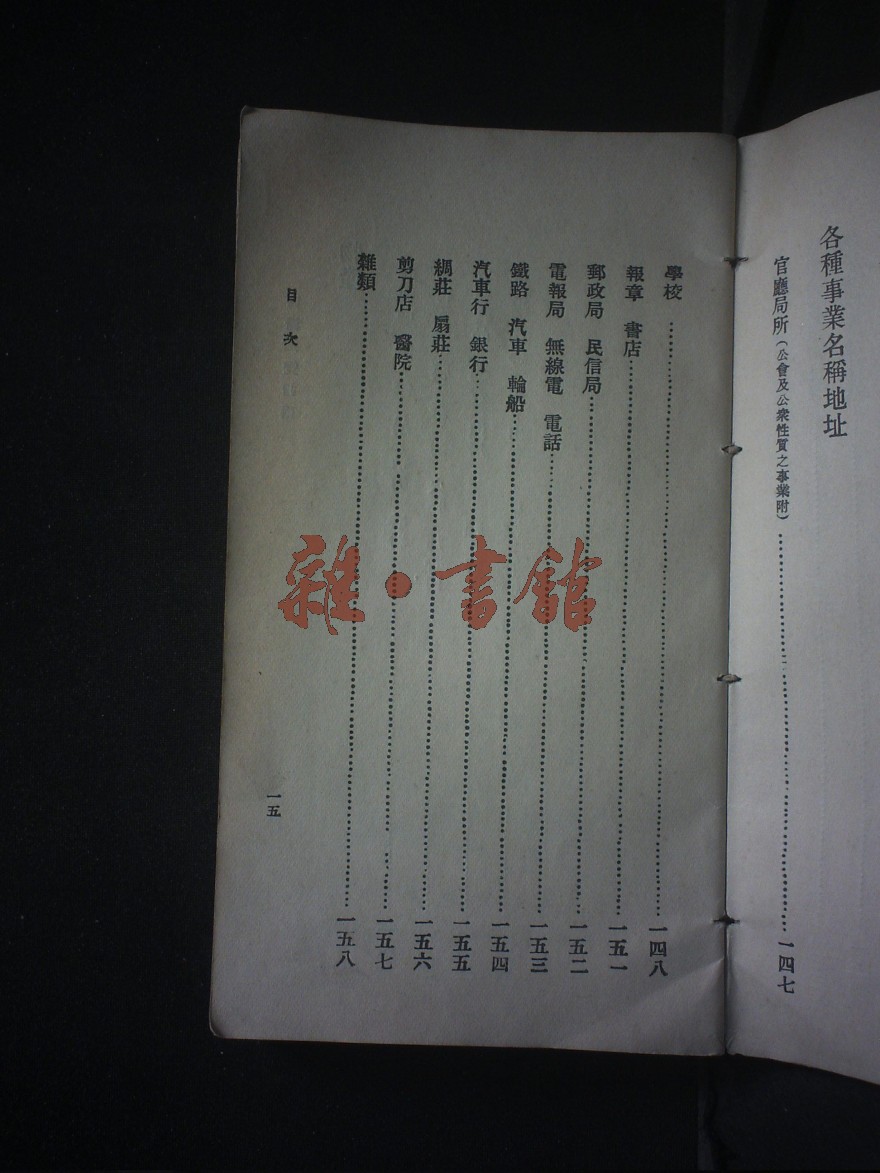 各種事業名稱地址
官廳局所(公會及公衆性質之事業附)……一四七
學校……一四八
報章 書店……一五一
郵政局 民信局……一五二
電報局 無線電 電話……一五三
鐵路 汽車 輪船……一五四
汽車行 銀行……一五五
綢莊 扇莊……一五六
剪刀店 醫院……一五七
雜類……一五八
目次
一五
雜·書館